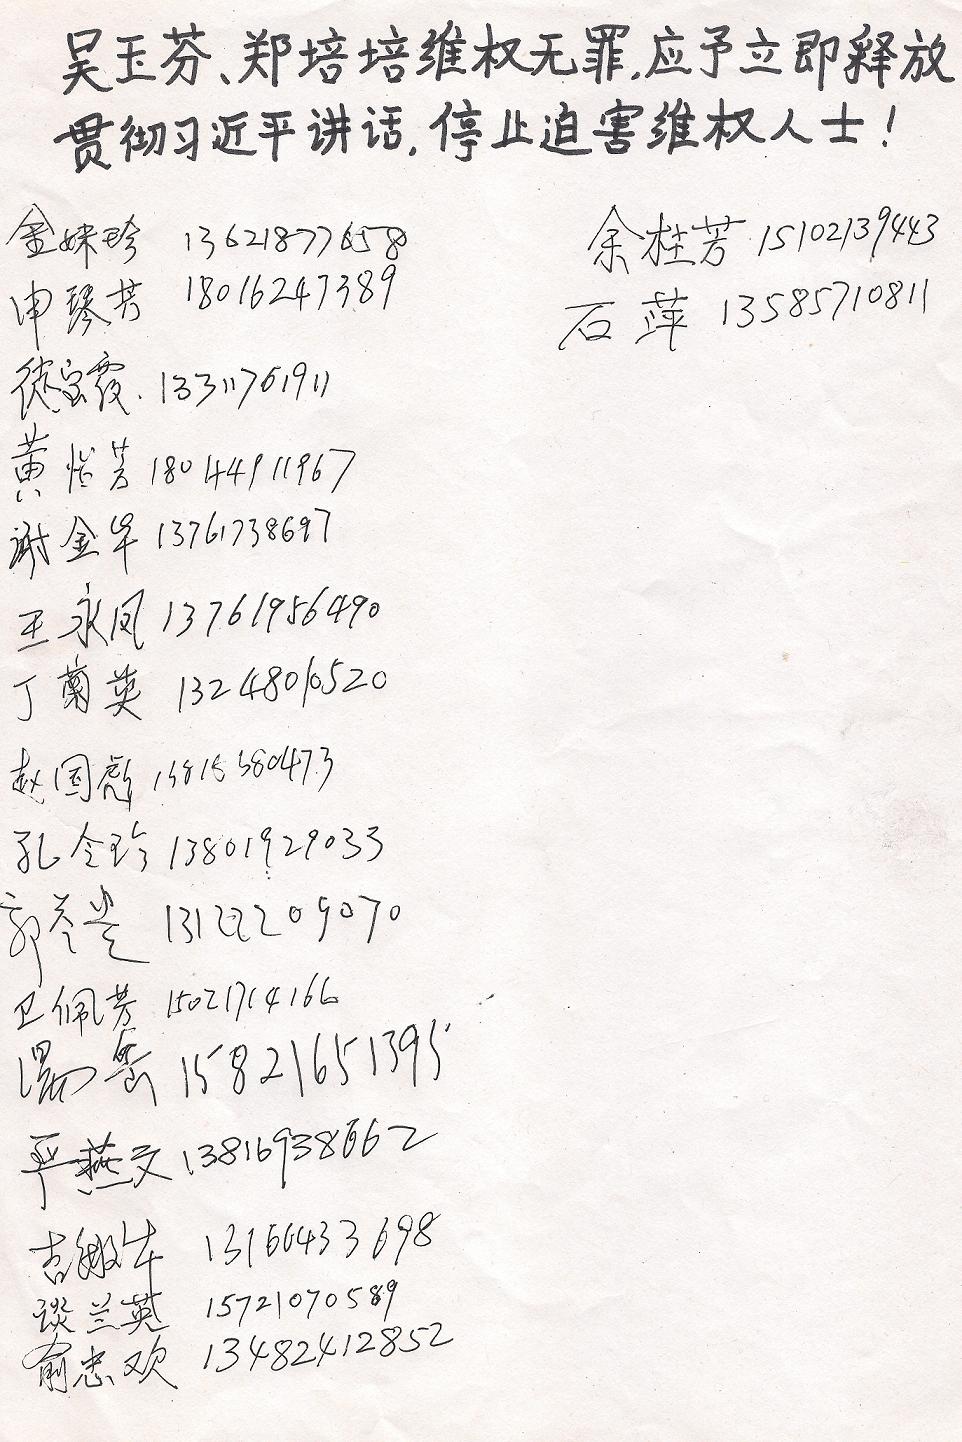 吴玉芬、郑培培维权无罪,应予立即释放
贯彻习近平讲话,停止迫害维权人士!
金妹珍 13621877658
申琴芳 18016247389
徐宝霞. 13311761911
黄怡芳 18014491967
谢金华 13761738697
王永凤 13761956490
丁菊英 13248010520
赵国彪 13815580473
孔令珍 13801929033
郭 13122209070
卫佩芳 15021714166
汤 15821651395
严燕文 13816938662
吉敏华 13166433698
谈兰英 15721070589
俞忠欢 13482412852
余桂芳 15102139443
石萍 13585710811